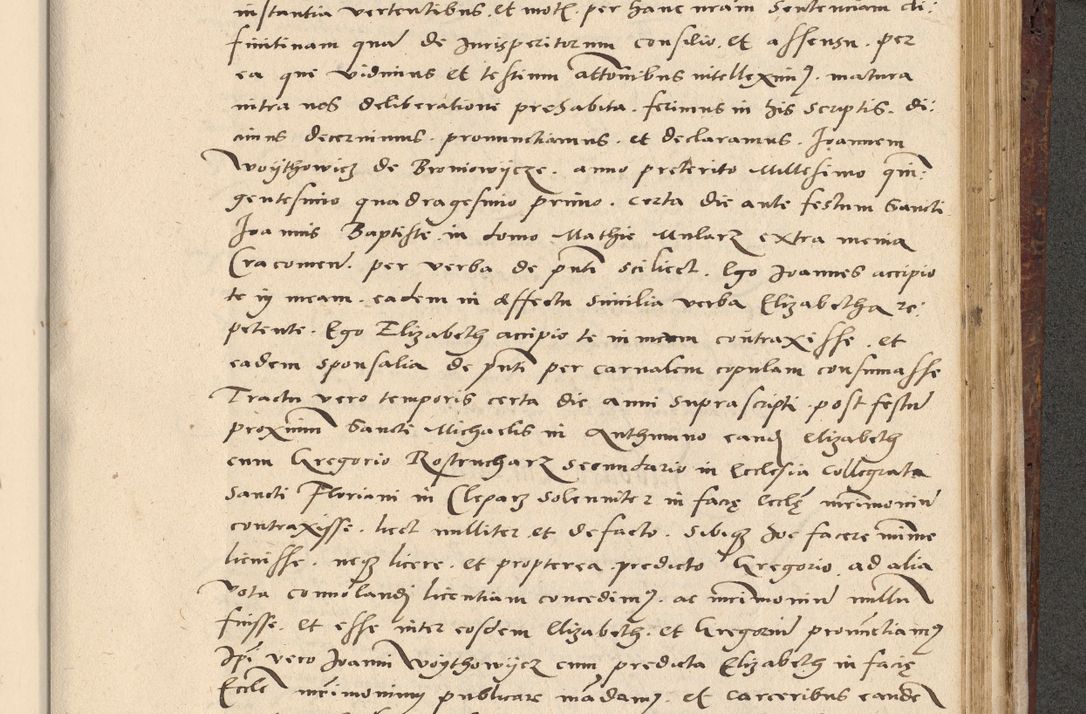 instantia vertentibus. et motę. per hanc nrãm sententiam di:
finitinam quã de Jurisperitorum consilio. et assensu. per
ea que vidimus et testium attõnibus intelleximꝯ. matura
intra nos deliberatione prehabita. ferimus in his scriptis. di:
cimus decernimus. pronunctiamus. et declaramus. Joannem
Woÿthowicz de Bronowÿcze. anno preterito Millesimo quĩ:
gentesimo quadragesimo primo. certa die ante festum Sancti
Joannis Baptiste in domo Mathie Mularz extra menia
Cracouien̄. per verba de pn̄ti scilicet. Ego Joannes accipio
te in meam. eadem in effectu similia verba Elizabetha re:
petente. Ego Elizabeth accipio te in meum cõntraxisse. et
eadem sponsalia de pn̄ti per carnalem copulam consumasse
Tractu vero temporis certa die anni suprascripti post festũ
proximũ Sancti Michaelis in Authumno eandꝫ Elizabeth
cum Gregorio Rostrucharz secundario in Ecclesia Collegiata
Sancti Floriani in Cleparz solenniter in facię Ecclę mrimoniũ
contraxisse. licet nulliter et de facto. sibiqꝫ hoc facere mĩme
licuisse. neqꝫ licere. et propterea predicto Gregorio ad alia
vota conuolandj licentiam concedimꝯ. ac mrimoniũ nullũ
fuisse. et esse inter eosdem Elizabeth. et Gregoriũ pronũctiamꝯ
Ipi vero Joanni Woÿthowÿcz cum predicta Elizabeth in facię
Eccle mrimonium publicare mãdamꝯ. et carceribus eandẽ